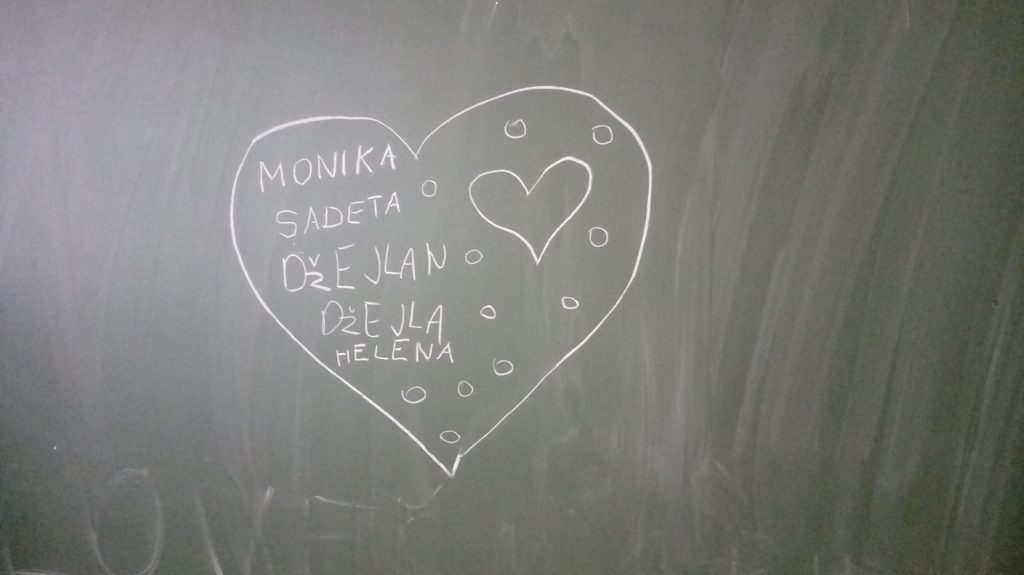 MONIKA
SADETA
DŽEJLAN
DŽEJLA
HELENA